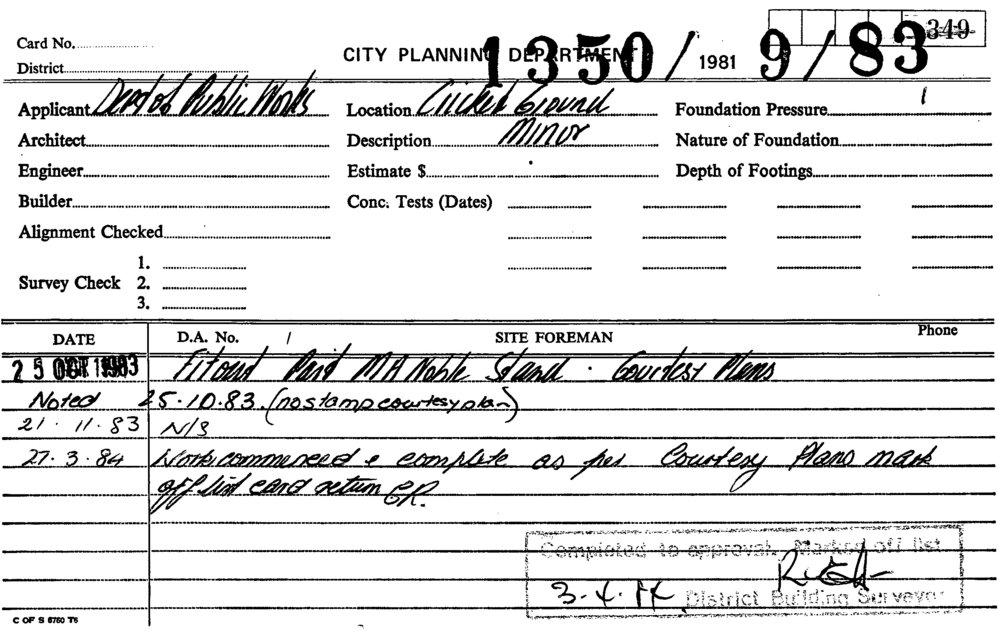 349
Card No.
CITY PLANNING DEPARTMENT 1350/1981 9/83
District
Applicant Dept of Public Works Location Cricket Ground Foundation Pressure
Architect Description Minor Nature of Foundation
Engineer Estimate $ Depth of Footings
Builder Conc. Tests (Dates)
Alignment Checked
1.
Survey Check 2.
3.
DATE D.A. No. / SITE FOREMAN Phone
25 OCT 1983 Fitout Part M A Noble Stand . Courtesy Plans
Noted 25.10.83. (no stamp courtesy plan)
21.11.83 N/S
27.3.84 Work commenced & complete as per Courtesy Plans mark
off list card return
Completed to approval. Marked off list
3.4.84 District Building Surveyor
C OF S 6750 T6